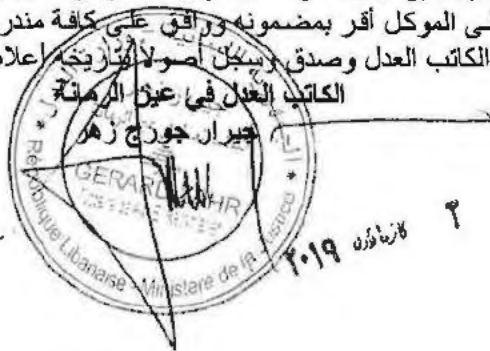 ى الموكل أقر بمضمونه ووافق على كافة مندر
الكاتب العدل وصدق وسجل أصولاً بتاريخه اعلا
الكاتب العدل في عين الرمانة
جيرار جورج زهر
GERARD
République Libanaise - Ministère de la Justice
٣ كانون اول ٢٠١٩